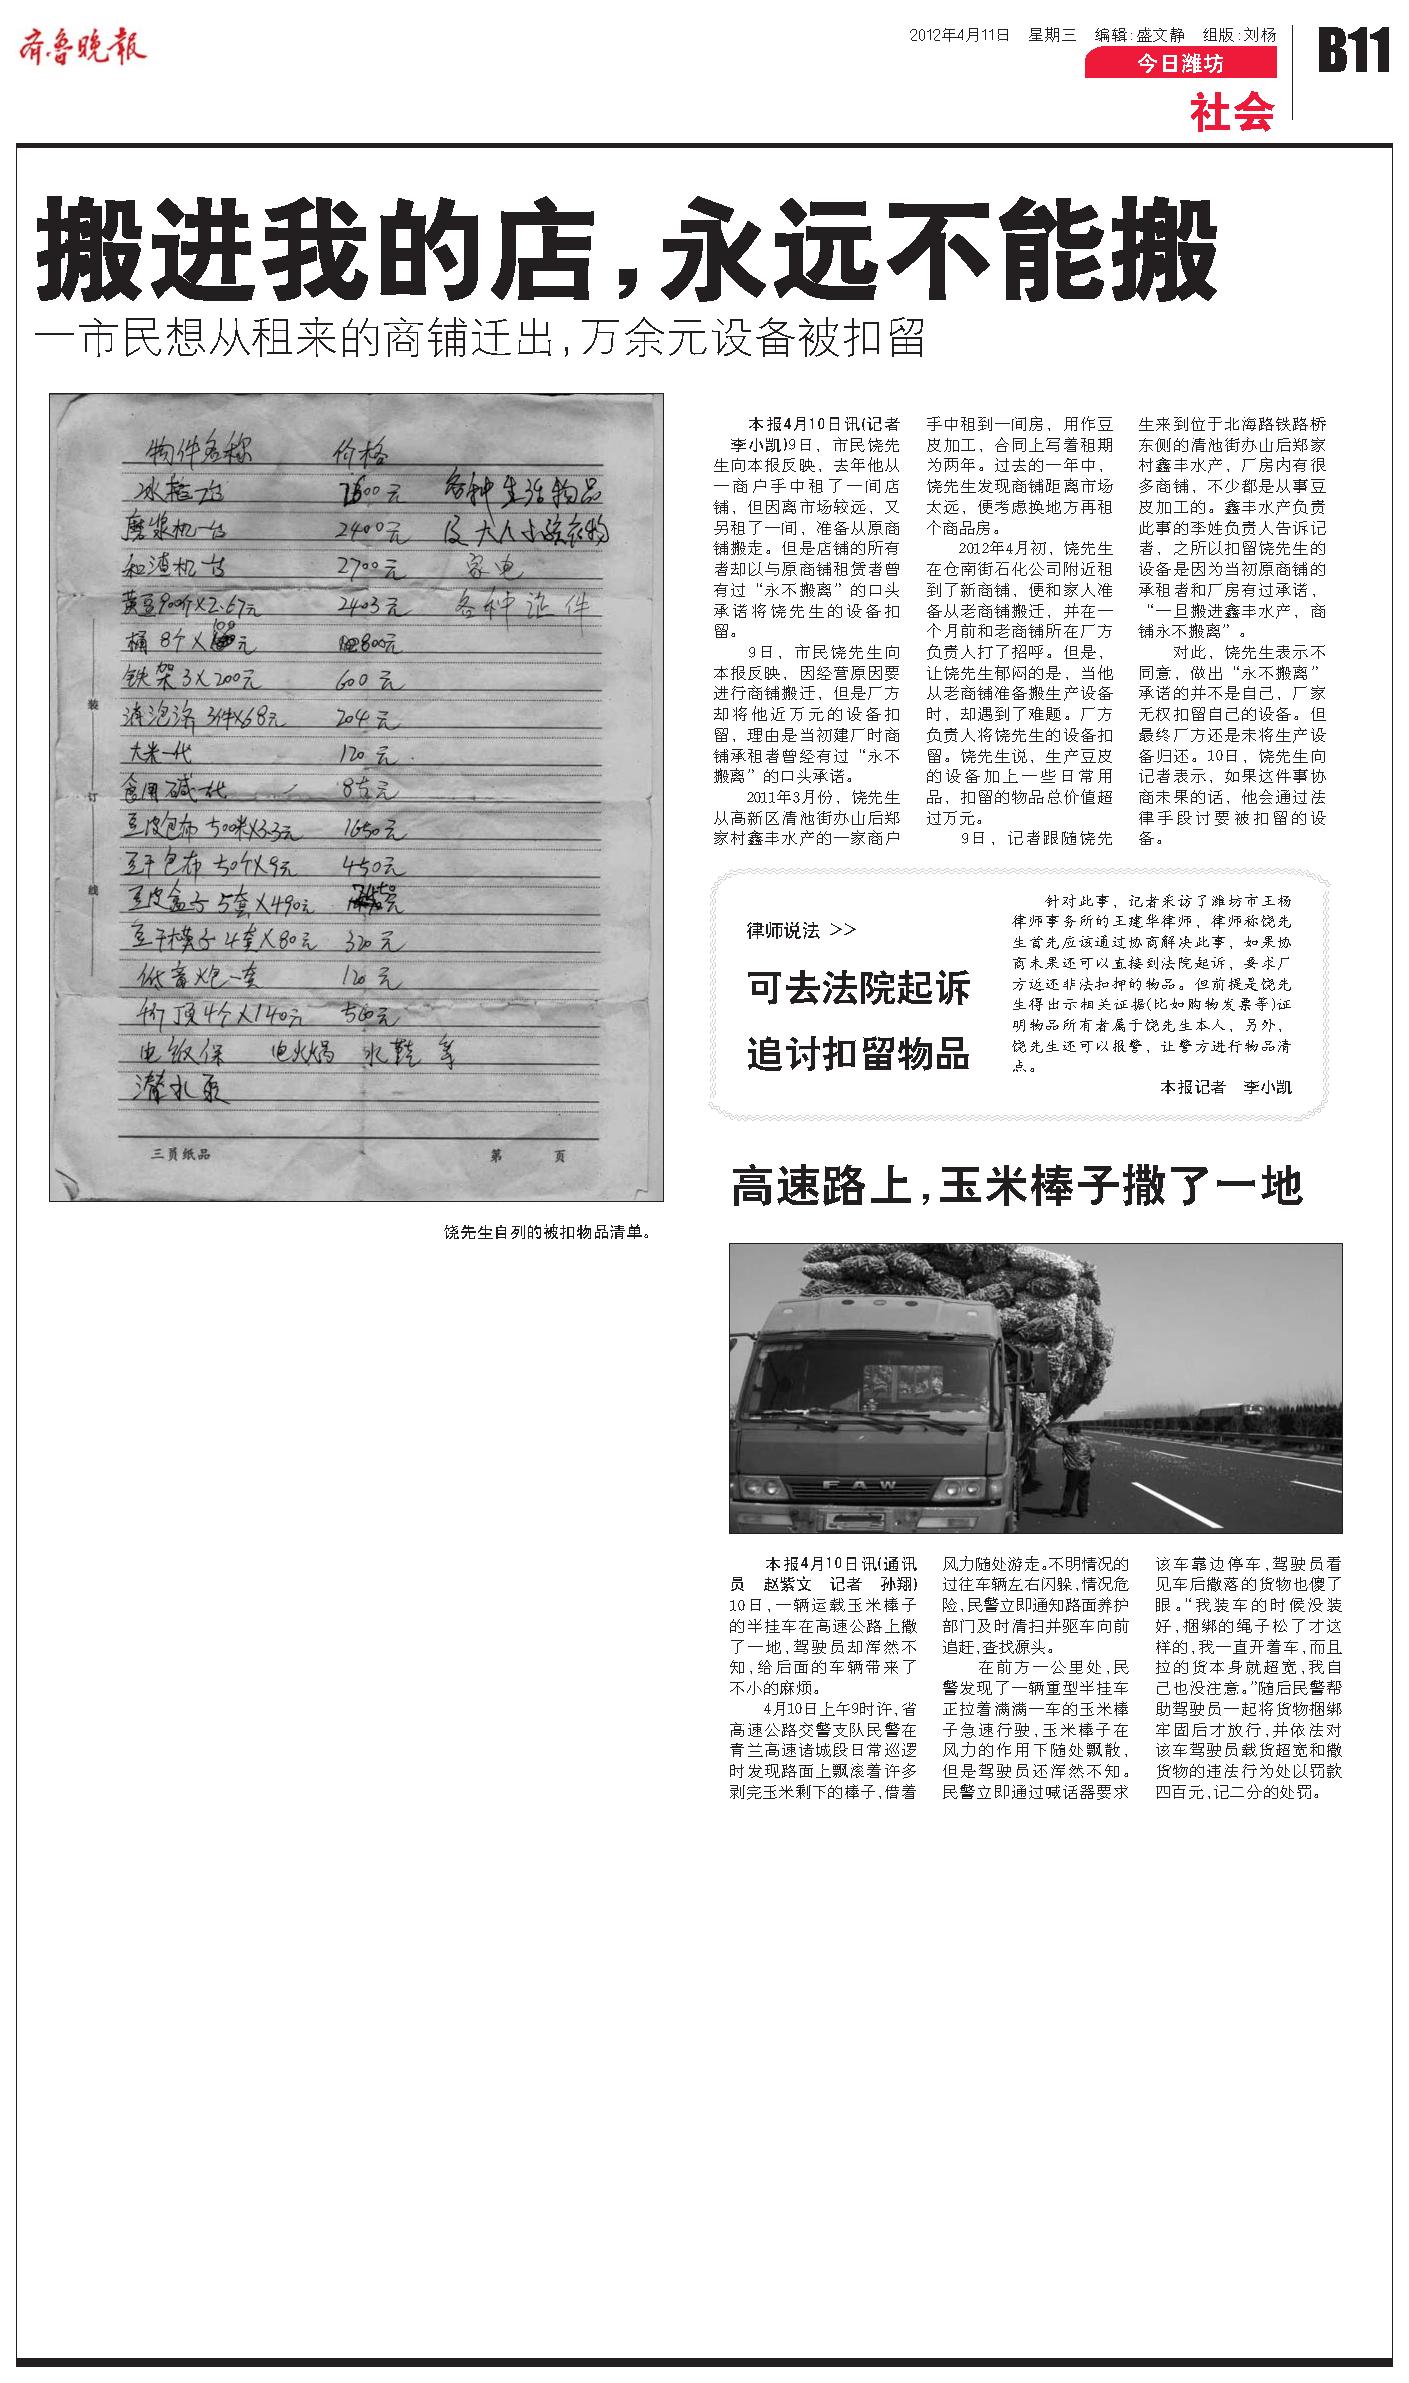 齐鲁晚报
2012年4月11日 星期三 编辑:盛文静 组版:刘杨
今日潍坊
社会
B11
搬进我的店,永远不能搬
一市民想从租来的商铺迁出,万余元设备被扣留
物件名称 价格
冰柜一台 元 各种生活物品
磨浆机一台 2400元 及大人小孩衣物
和渣机一台 2700元 家电
黄豆900斤×2.67元 2403元 各种证件
桶 8个×100元 800元
铁架3×200元 600元
3件×68元 204元
大米一代 120元
食用碱一代 85元
豆皮包布 500米×3.3元 1650元
豆干包布 50个×9元 450元
豆皮盒子 5套×490元
豆干模子 4套×80元 320元
120元
顶4个×140元 560元
电饭保 电火锅 水 等
潜水泵
装
订
线
三员纸品 第 页
饶先生自列的被扣物品清单。
本报4月10日讯(记者
李小凯)9日，市民饶先
生向本报反映，去年他从
一商户手中租了一间店
铺，但因离市场较远，又
另租了一间，准备从原商
铺搬走。但是店铺的所有
者却以与原商铺租赁者曾
有过“永不搬离”的口头
承诺将饶先生的设备扣
留。
9日，市民饶先生向
本报反映，因经营原因要
进行商铺搬迁，但是厂方
却将他近万元的设备扣
留，理由是当初建厂时商
铺承租者曾经有过“永不
搬离”的口头承诺。
2011年3月份，饶先生
从高新区清池街办山后郑
家村鑫丰水产的一家商户
手中租到一间房，用作豆
皮加工，合同上写着租期
为两年。过去的一年中，
饶先生发现商铺距离市场
太远，便考虑换地方再租
个商品房。
2012年4月初，饶先生
在仓南街石化公司附近租
到了新商铺，便和家人准
备从老商铺搬迁，并在一
个月前和老商铺所在厂方
负责人打了招呼。但是，
让饶先生郁闷的是，当他
从老商铺准备搬生产设备
时，却遇到了难题。厂方
负责人将饶先生的设备扣
留。饶先生说，生产豆皮
的设备加上一些日常用
品，扣留的物品总价值超
过万元。
9日，记者跟随饶先
生来到位于北海路铁路桥
东侧的清池街办山后郑家
村鑫丰水产，厂房内有很
多商铺，不少都是从事豆
皮加工的。鑫丰水产负责
此事的李姓负责人告诉记
者，之所以扣留饶先生的
设备是因为当初原商铺的
承租者和厂房有过承诺，
“一旦搬进鑫丰水产，商
铺永不搬离”。
对此，饶先生表示不
同意，做出“永不搬离”
承诺的并不是自己，厂家
无权扣留自己的设备。但
最终厂方还是未将生产设
备归还。10日，饶先生向
记者表示，如果这件事协
商未果的话，他会通过法
律手段讨要被扣留的设
备。
律师说法 >>
可去法院起诉
追讨扣留物品
针对此事，记者采访了潍坊市王杨
律师事务所的王建华律师，律师称饶先
生首先应该通过协商解决此事，如果协
商未果还可以直接到法院起诉，要求厂
方返还非法扣押的物品。但前提是饶先
生得出示相关证据(比如购物发票等)证
明物品所有者属于饶先生本人，另外，
饶先生还可以报警，让警方进行物品清
点。
本报记者 李小凯
高速路上,玉米棒子撒了一地
FAW
本报4月10日讯(通讯
员 赵紫文 记者 孙翔)
10日,一辆运载玉米棒子
的半挂车在高速公路上撒
了一地,驾驶员却浑然不
知,给后面的车辆带来了
不小的麻烦。
4月10日上午9时许,省
高速公路交警支队民警在
青兰高速诸城段日常巡逻
时发现路面上飘滚着许多
剥完玉米剩下的棒子,借着
风力随处游走。不明情况的
过往车辆左右闪躲,情况危
险,民警立即通知路面养护
部门及时清扫并驱车向前
追赶,查找源头。
在前方一公里处,民
警发现了一辆重型半挂车
正拉着满满一车的玉米棒
子急速行驶,玉米棒子在
风力的作用下随处飘散,
但是驾驶员还浑然不知。
民警立即通过喊话器要求
该车靠边停车,驾驶员看
见车后撒落的货物也傻了
眼。“我装车的时候没装
好,捆绑的绳子松了才这
样的,我一直开着车,而且
拉的货本身就超宽,我自
己也没注意。”随后民警帮
助驾驶员一起将货物捆绑
牢固后才放行,并依法对
该车驾驶员载货超宽和撒
货物的违法行为处以罚款
四百元,记二分的处罚。